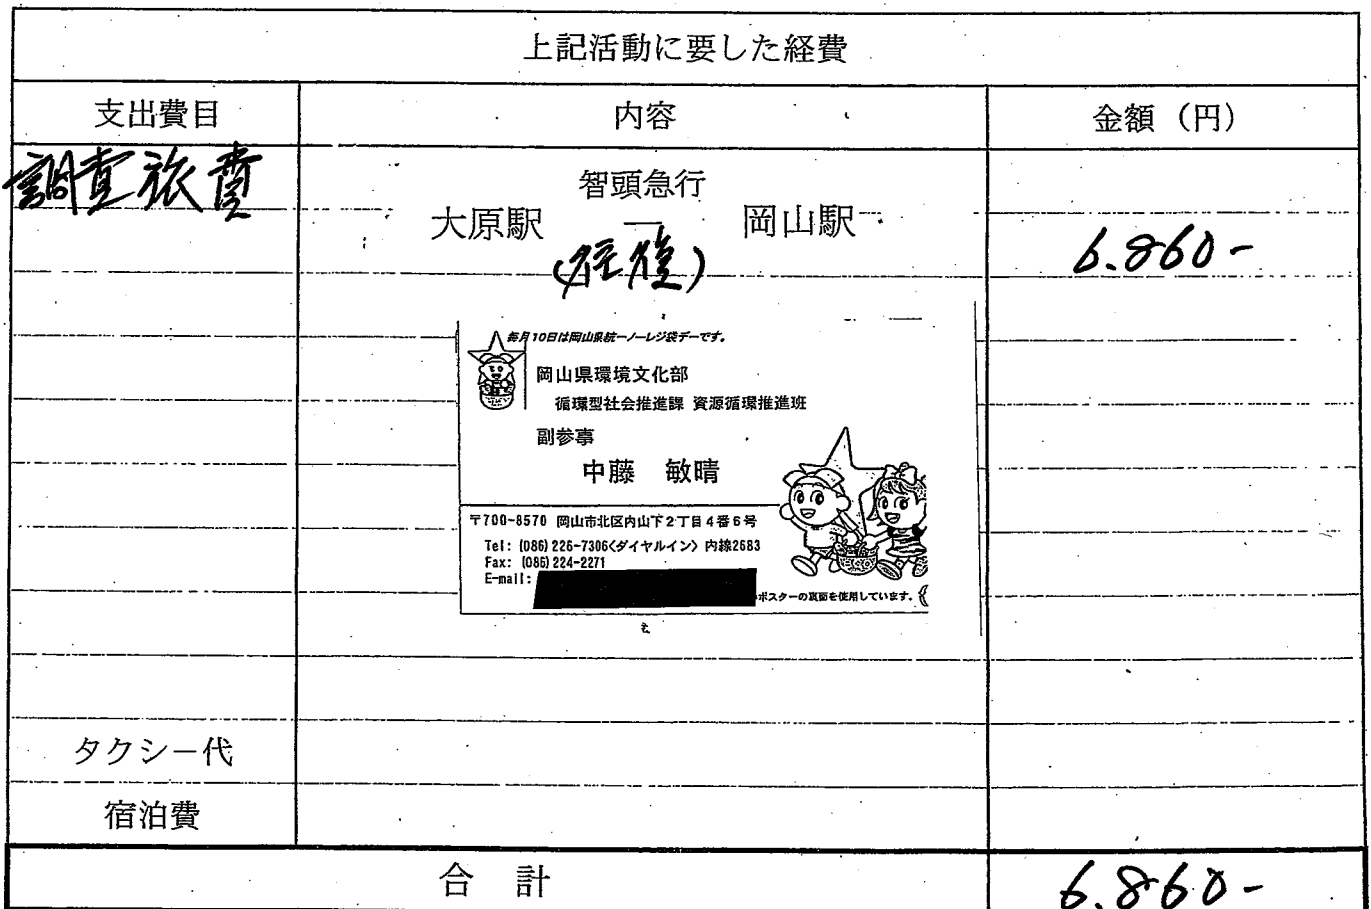 上記活動に要した経費
支出費目 内容 金額（円）
調査旅費
智頭急行
大原駅 ― 岡山駅
(往復)
6.860-
毎月10日は岡山県統一ノーレジ袋デーです。
岡山県環境文化部
循環型社会推進課 資源循環推進班
副参事
中藤 敏晴
〒700-8570 岡山市北区内山下2丁目4番6号
Tel: (086) 226-7306<ダイヤルイン> 内線2683
Fax: (086) 224-2271
E-mail:
ポスターの裏面を使用しています。
タクシー代
宿泊費
合計 6.860-